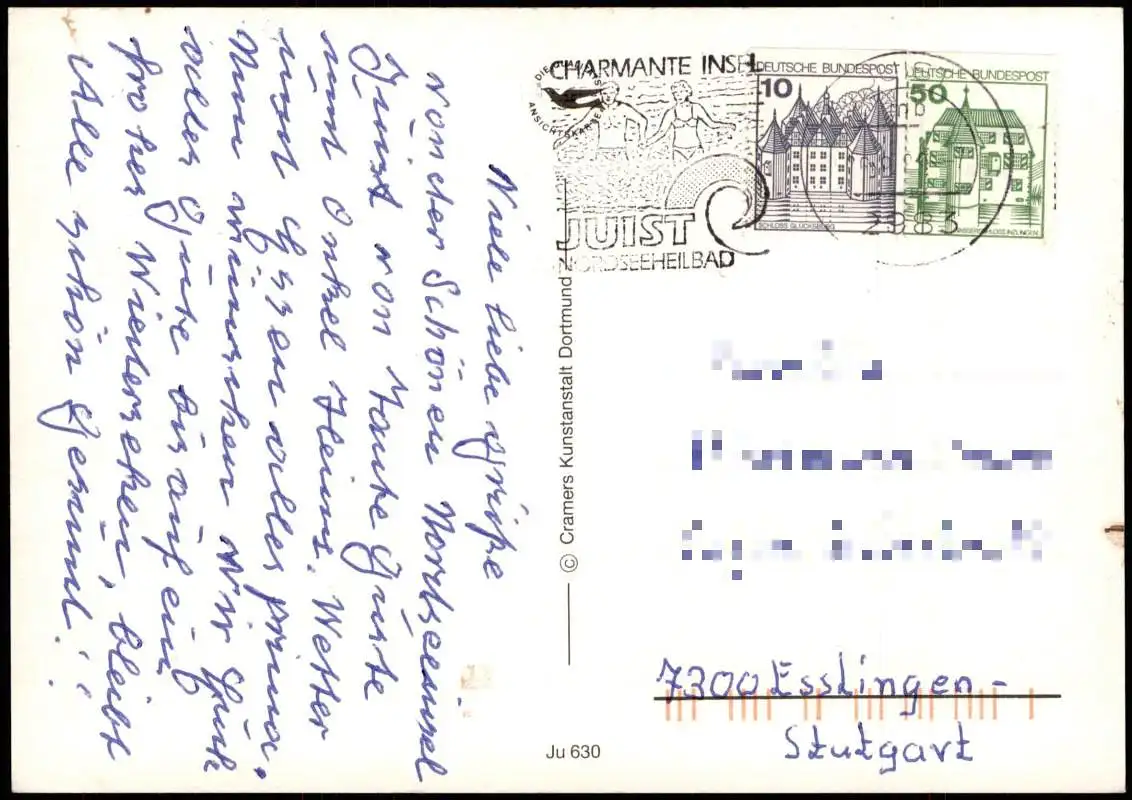 Viele liebe Grüße
von der Schönen Nordseeinsel
Juist von Tante Guste
und Onkel Heinz. Wetter
und Essen alles prima.
Nun wünschen wir Euch
alles Gute bis auf ein
frohes Wiedersehen, bleibt
Alle schön Gesund!
CHARMANTE INSEL
JUIST
NORDSEEHEILBAD
DIE
ANSICHTSKARTE
DEUTSCHE BUNDESPOST
10
SCHLOSS GLÜCKSBURG
DEUTSCHE BUNDESPOST
50
WASSERSCHLOSS INZLINGEN
2983
© Cramers Kunstanstalt Dortmund
7300 Esslingen-
Stuttgart
Ju 630